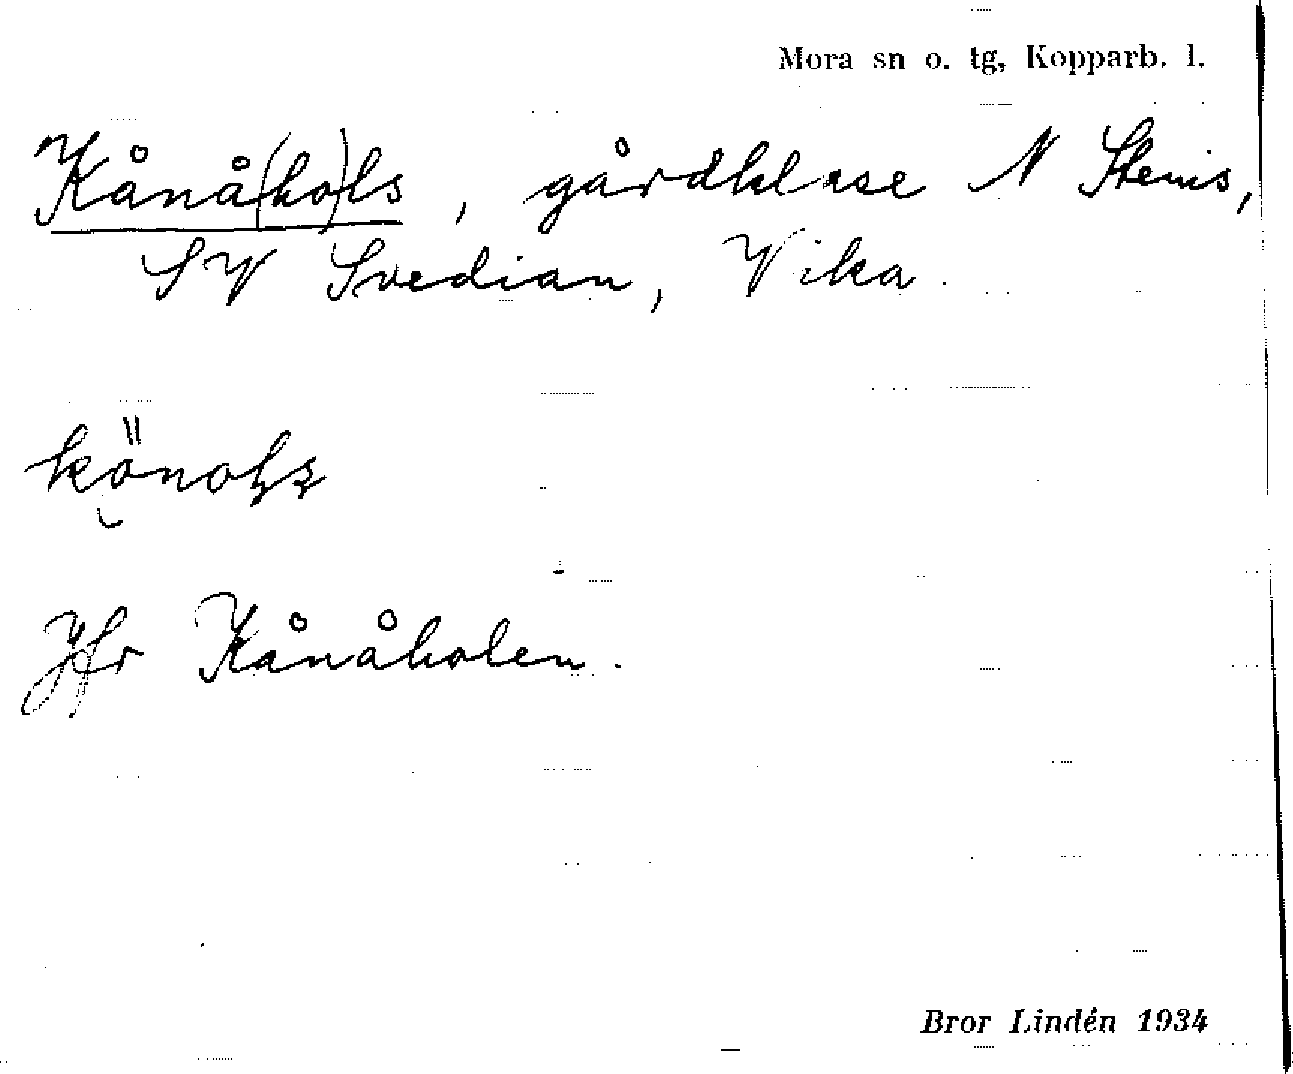 Mora sn o. tg, Kopparb. l.
Kånå(ho)ls, gårdklase N Stenis,
SV Svedian, Vika.
Jfr Kånåholen.
Bror Lindén 1934